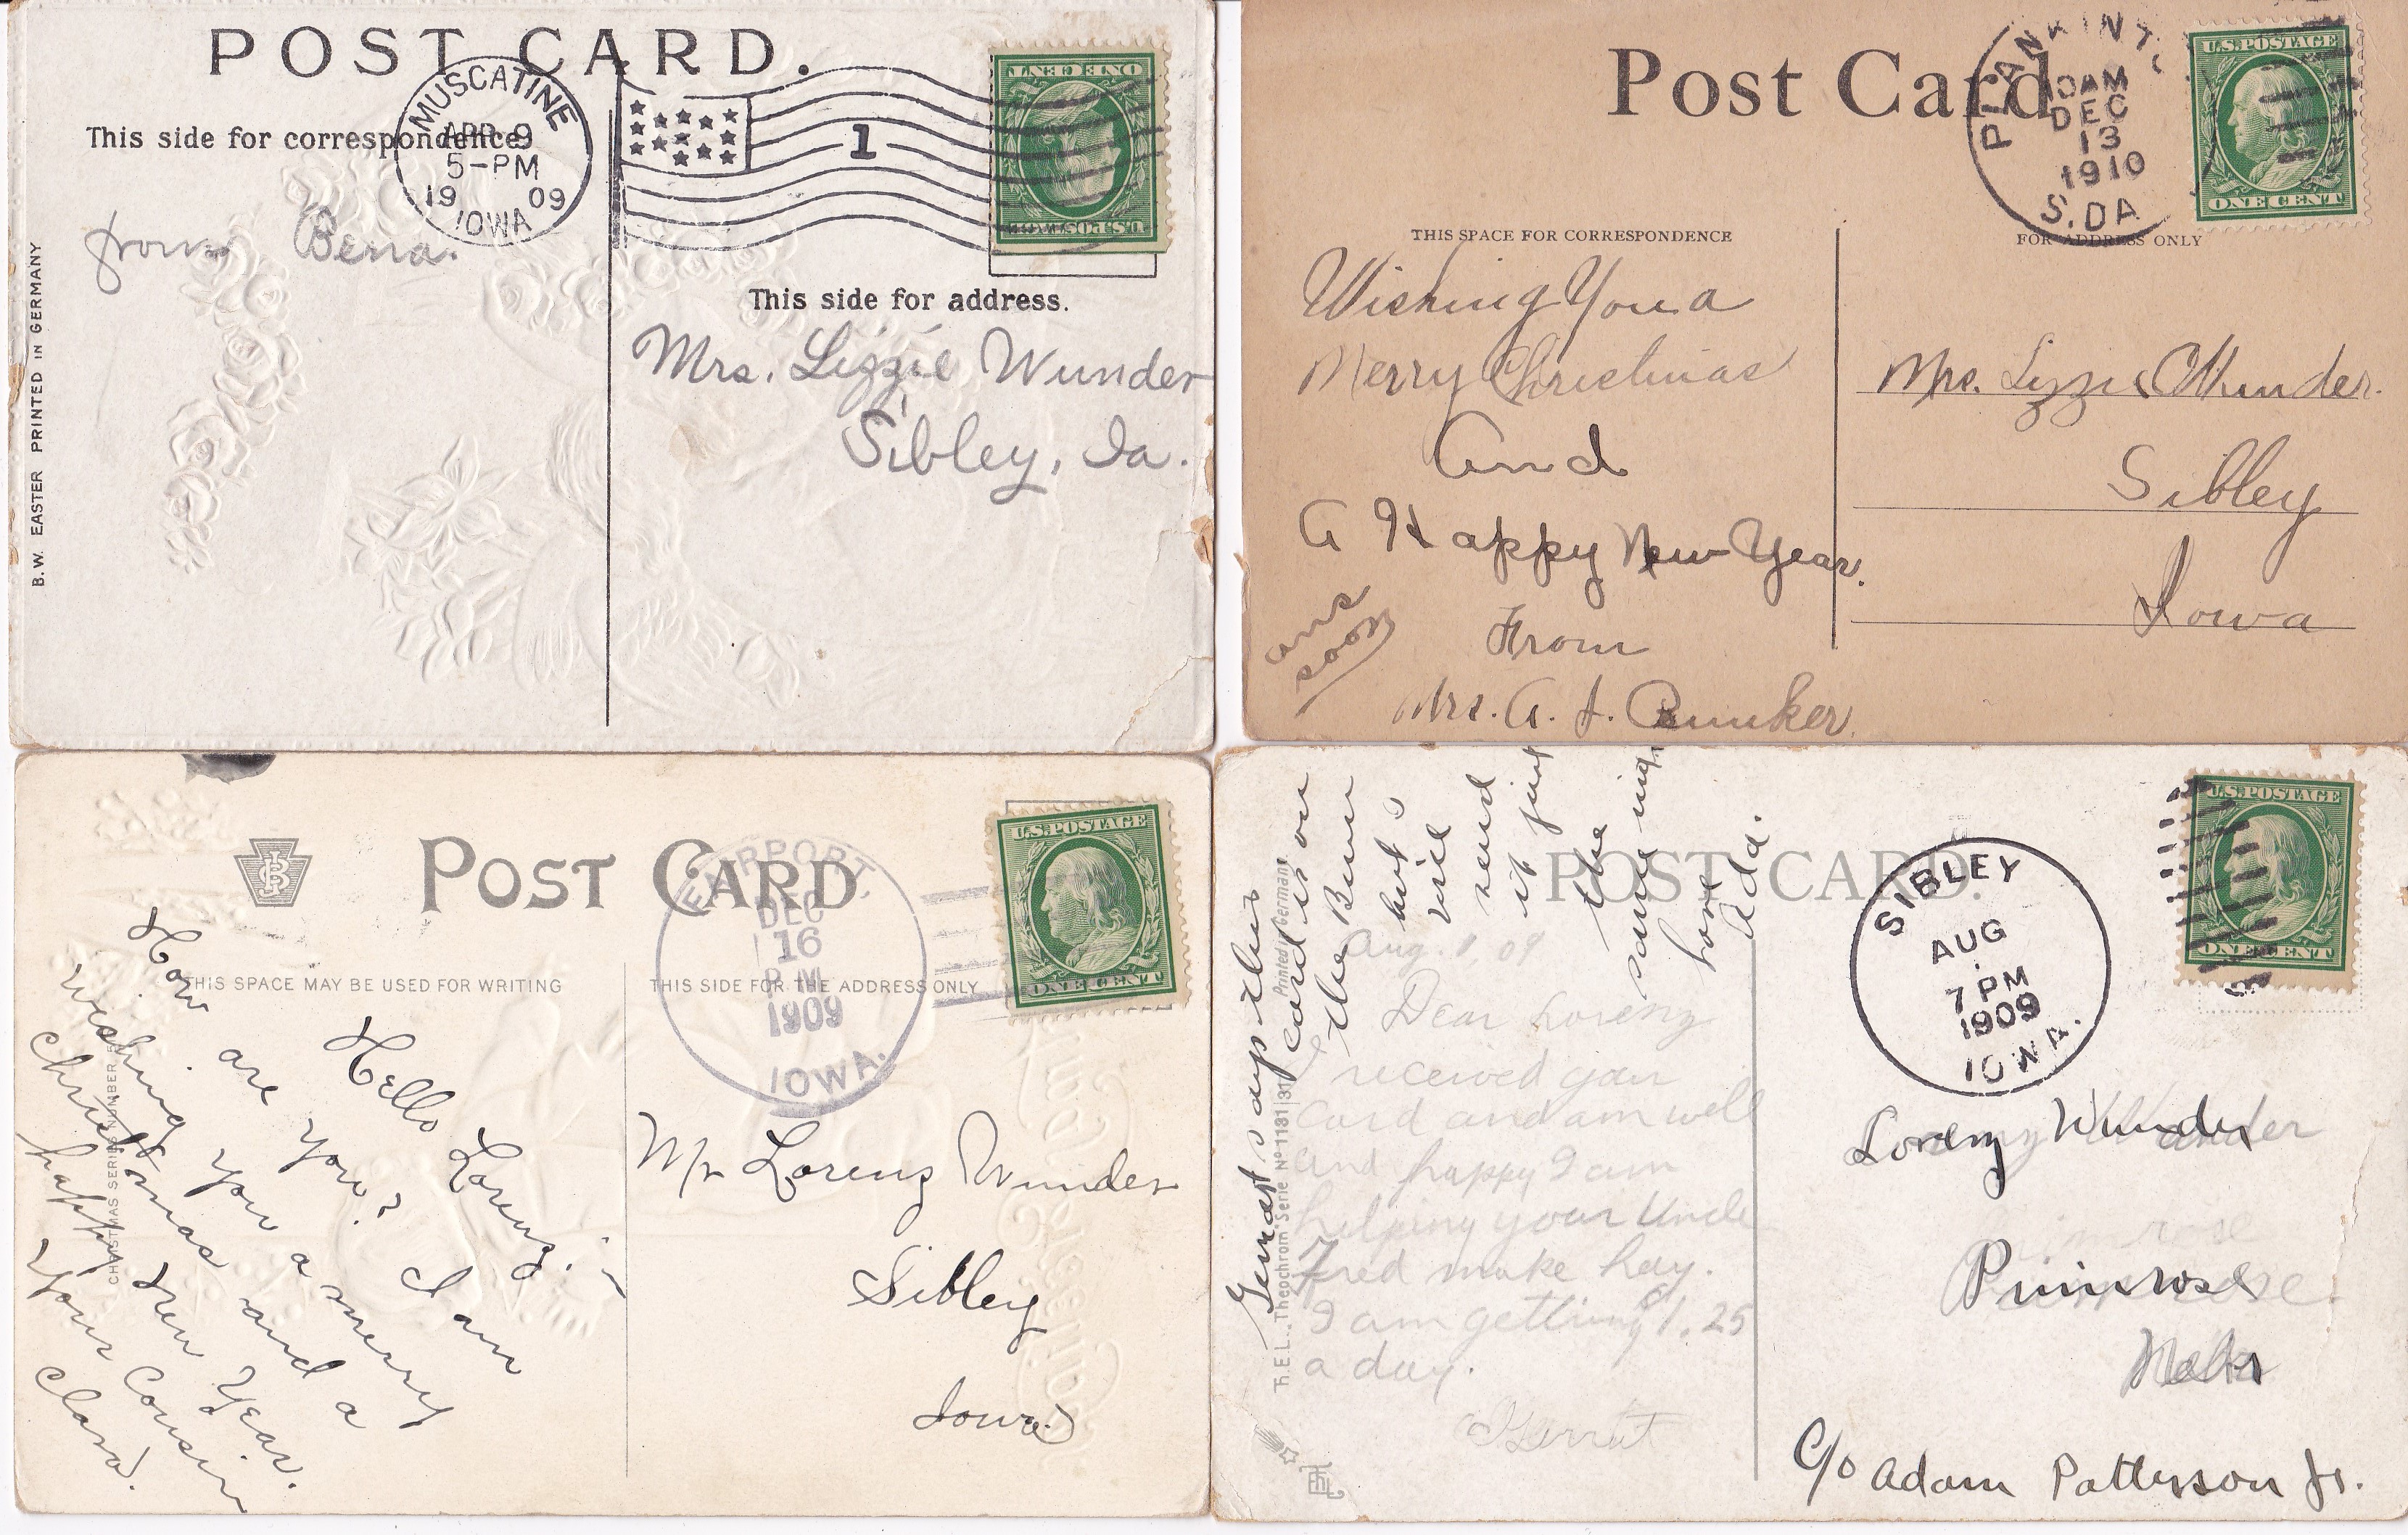 POST CARD.
MUSCATINE
APR 9
5-PM
19 09
IOWA
1
ONE CENT
U.S. POSTAGE
This side for correspondence
from Bena.
B.W. EASTER PRINTED IN GERMANY
This side for address.
Mrs. Lizzie Wunder
Sibley, Ia.
Post Card
DEC
13
1910
S.DA
U.S. POSTAGE
ONE CENT
THIS SPACE FOR CORRESPONDENCE
FOR ADDRESS ONLY
Wishing You a
Merry Christmas
And
A Happy New Year.
From
Mrs. A. J.
ans
soon
Mrs. Lizzie Wunder.
Sibley
Iowa
POST CARD
FAIRPORT,
DEC
16
P M
1909
IOWA.
U.S. POSTAGE
ONE CENT
THIS SPACE MAY BE USED FOR WRITING
THIS SIDE FOR THE ADDRESS ONLY
CHRISTMAS SERIES NUMBER
Hello Lorenz.
How are you? I am
wishing you a merry
Christmas and a
happy New Year.
Your Cousin
Clara.
Mr Lorenz Wunder
Sibley
Iowa
POST CARD.
SIBLEY
AUG
7 PM
1909
IOWA.
U.S. POSTAGE
ONE CENT
Th. E. L. Theochrom Serie No 1181|31 Printed Germany
Gerrast says this
card is on
the Bum
but I
will
send
it just
the
same
love
Ada.
Aug. 1, 09
Dear Lorenz
I received your
card and am well
and happy I am
helping your Uncle
Fred make hay.
I am getting $1.25
a day.
Gerrit
Lorenz Wunder
Primrose
Nebr
C/o Adam Patterson Jr.